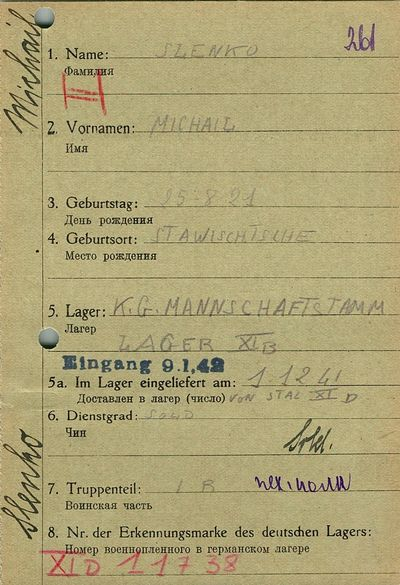 Michail
261
1. Name: SLENKO
Фамилия
II
2. Vornamen: MICHAIL
Имя
3. Geburtstag: 25·8·21
День рождения
4. Geburtsort: STAWISCHTSCHE
Место рождения
5. Lager: K.G. MANNSCHAFTSTAMM
Лагер
LAGER XIB
Eingang 9.1.42
5a. Im Lager eingeliefert am: 1 12 41
Доставлен в лагер (число) VON STAL XI D
6. Dienstgrad: SOLD
Чин
Slenko
Sold.
7. Truppenteil: I R
Воинская часть
8. Nr. der Erkennungsmarke des deutschen Lagers:
Номер военнопленного в германском лагере
XID 11738